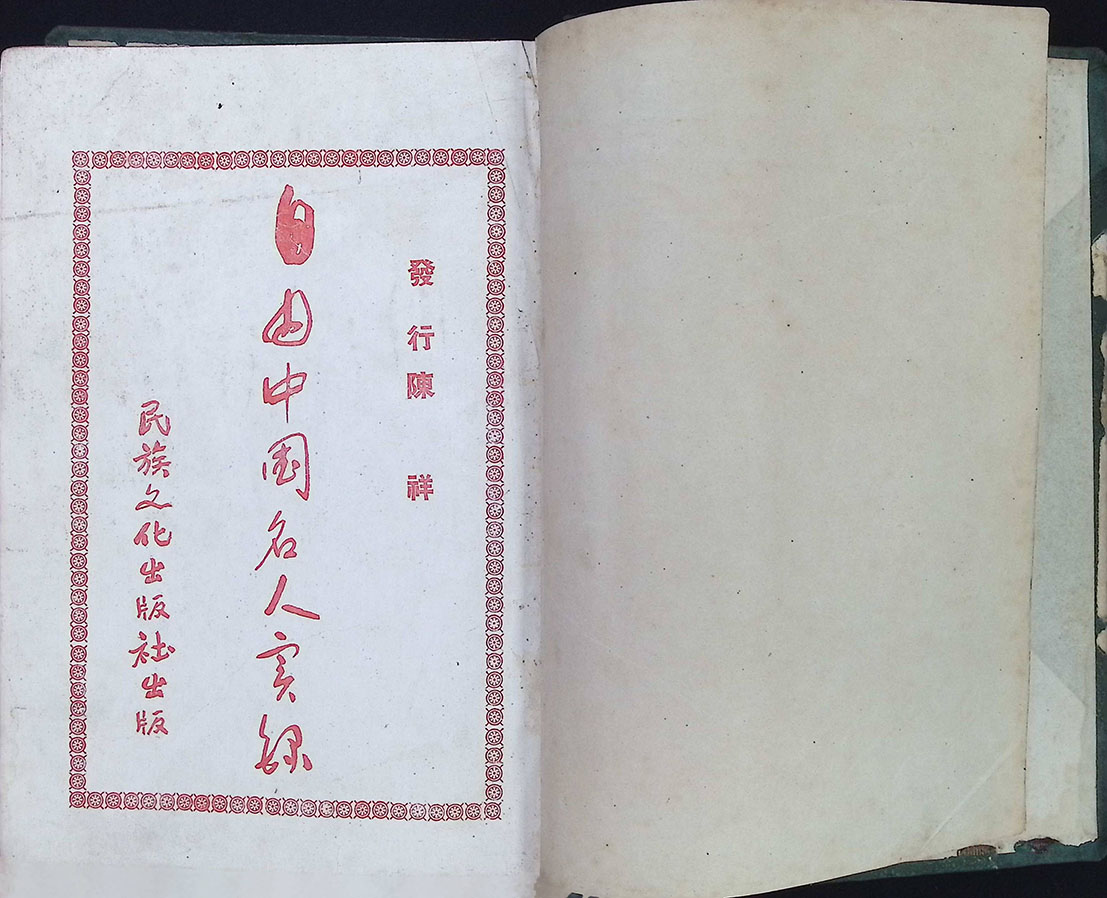 發行陳祥
自由中国名人实録
民族文化出版社出版